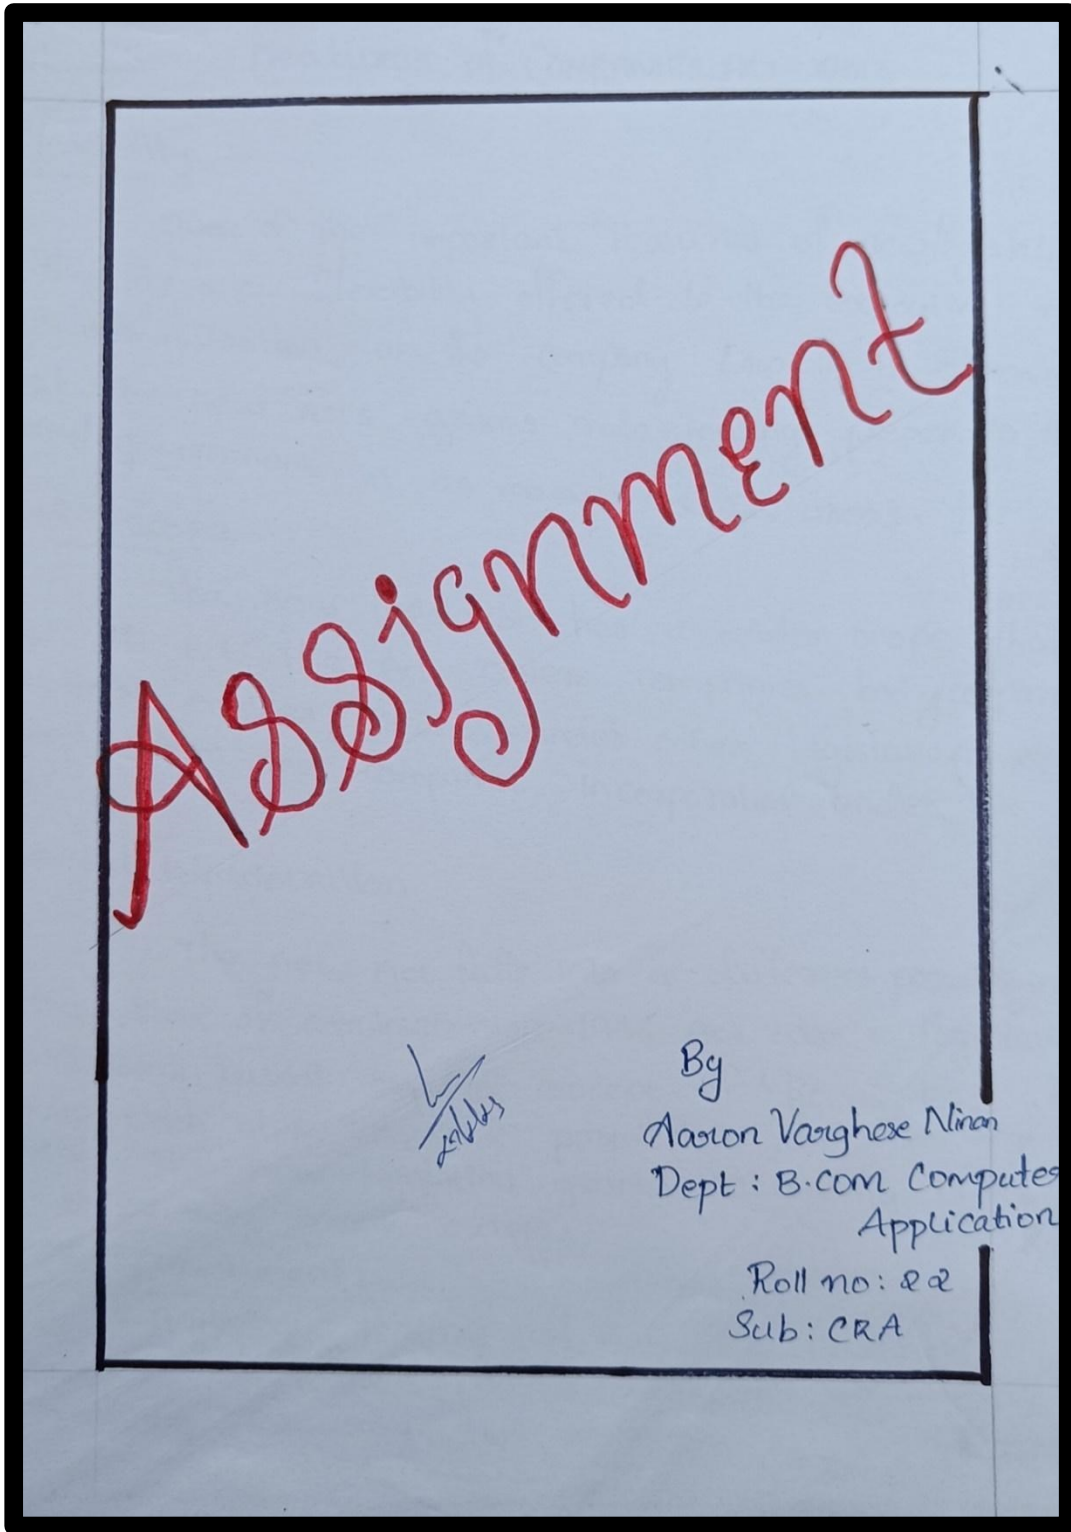 Assignment
By
Aaron Varghese Ninan
Dept : B.com Computer
Application
Roll no: 22
Sub: CRA